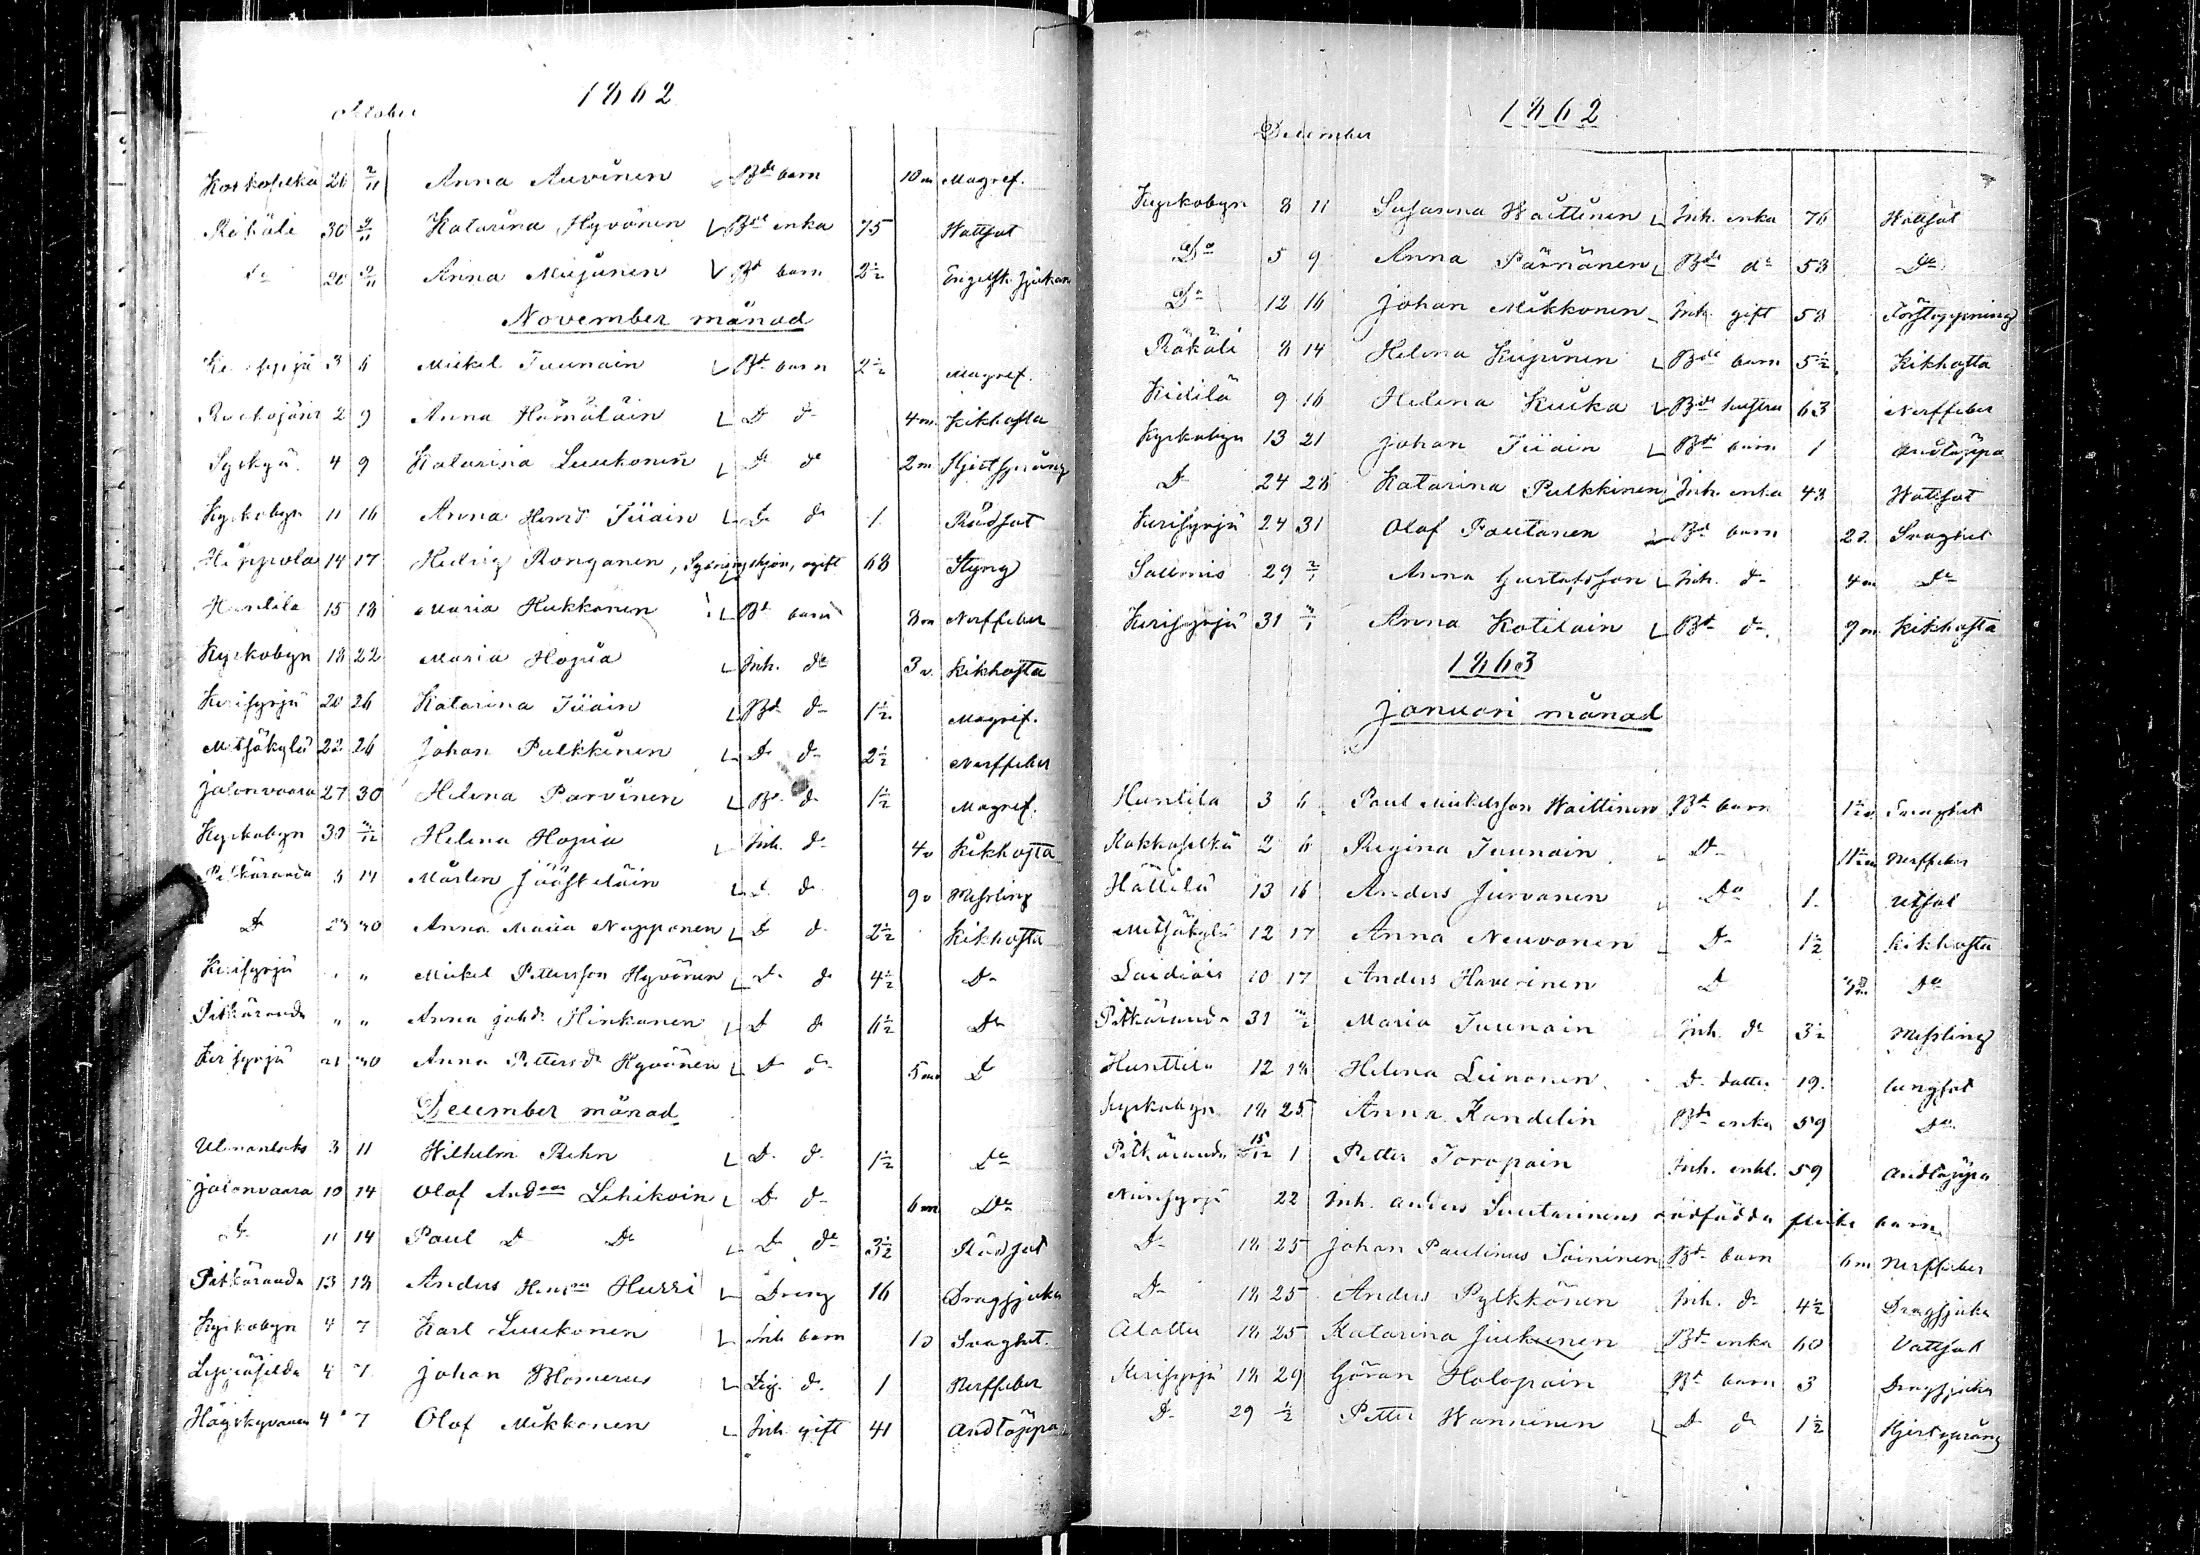 1862
October
Koskoselkä 26 2/11 Anna Auvinen Bde barn 10 m Magref.
Räkäli 30 2/11 Katarina Hyvönen Bde enka 75 Wattsot
do 20 2/11 Anna Meijunen Bd barn 2 1/2 Engelsk sjukan
November månad
3 6 Mickel Juunain Bd barn 2 1/2 Magref.
2 9 Anna Hämäläin D d 4 m. Kikhosta
Syskyä 4 9 Katarina Luukonen D de 2 m Hjertsprång
Kyrkobyn 11 16 Anna Henrd Iiain D d 1 Rödsot
Hippola 14 17 Hedvig Ronganen, ogift 68 Styng
Huntila 15 18 Maria Hukkanen Bd barn 8 m Nerffeber
Kyrkobyn 18 22 Maria Hojua Inh. de 3 v. Kikhosta
Kirisyrjä 20 26 Katarina Iiain Bd d 1 1/2 Magref.
Metsäkylä 22 26 Johan Pulkkinen D d 2 1/2 Nerffeber
Jalonvaara 27 30 Helena Parvinen Bd d 1 1/2 Magref.
Kyrkobyn 30 Helena Hojua Inh. d 4 v Kikhosta
Pitkäranda 6 14 Mårten Jääskeläin d d 9 v Messling
D 23 30 Anna Maria Napponen D d 2 1/2 Kikhosta
Kirisyrjä " " Mickel Pettersson Hyvönen D d 4 1/2 D
Pitkäranda " " Anna Johd. Hinkanen D d 6 1/2 Do
Kirisyrjä 21 30 Anna Pettersd Hyvönen D d 5 m D
December månad
3 11 Wilhelm Rehn D d 1 1/2 Do
Jalonvaara 10 14 Olof Andson Lehikoin D d 6 m Do
D 11 14 Paul D Do D de 3 1/2 Rödsot
Pitkäranda 13 18 Anders Henrson Hurri Dreng 16 Dragsjuka
Kyrkobyn 4 7 Karl Luukonen Inh barn 10 Svaghet.
4 7 Johan Blomerus d. 1 Nerffeber
4 7 Olof Mikkonen Inh gift 41 Andtäppa
1862
December
Kyrkobyn 8 11 Susanna Waittinen Inh. enka 76 Wattsot
Do 5 9 Anna Pärnänen Bde do 58 Do
Do 12 16 Johan Mikkonen Inh gift 58 Förstoppning
Räkäli 8 14 Helena Kujunen Bde barn 5 1/2 Kikhosta
Kidilä 9 16 Helena Kuika Bde hustru 63 Nerffeber
Kyrkobyn 13 21 Johan Iiain Bde barn 1 Andtäppa
D 24 28 Katarina Pulkkinen Inh. enka 48 Wattsot
Kirisyrjä 24 31 Olof Pautanen Bd barn 2 d. Svaghet
Sallmis 29 2/1 Anna Gustafsson Inh. d 4 m Do
Kirisyrjä 31 Anna Kotilain Bd d. 9 m Kikhosta
1863
Januari månad
Huntila 3 6 Paul Mickelsson Waittinen Bd barn Svaghet
Kokkaselkä 2 6 Regina Juunain D Nerffeber
Hättilä 13 16 Anders Jurvanen Do 1. Utsot
Metsäkylä 12 17 Anna Neuvonen D 1 1/2 Kikhosta
10 17 Anders Haverinen D Do
Pitkäranda 31 Maria Juunain Inh. de 3 1/2 Messling
Hunttila 12 18 Helena Leinonen D. dotter 19. lungsot
Kyrkobyn 18 25 Anna Kandelin Bde enka 59 Do
Pitkäranda 15/12 1 Petter Toropain Inh. enkl. 59 Andtäppa
22 Inh. Anders Suutarinens dödfödda flicka barn
D 18 25 Johan Paulinus Soininen Bd barn 6 m Nerffeber
D 18 25 Anders Pylkkönen Inh. d 4 1/2 Dragsjuka
Alattu 18 25 Katarina Juikunen Bde enka 60 Vattsot
Kirisyrjä 18 29 Göran Holopain Bd barn 3 Dragsjuka
D 29 1/2 Petter Wanninen D d 1 1/2 Hjertsprång